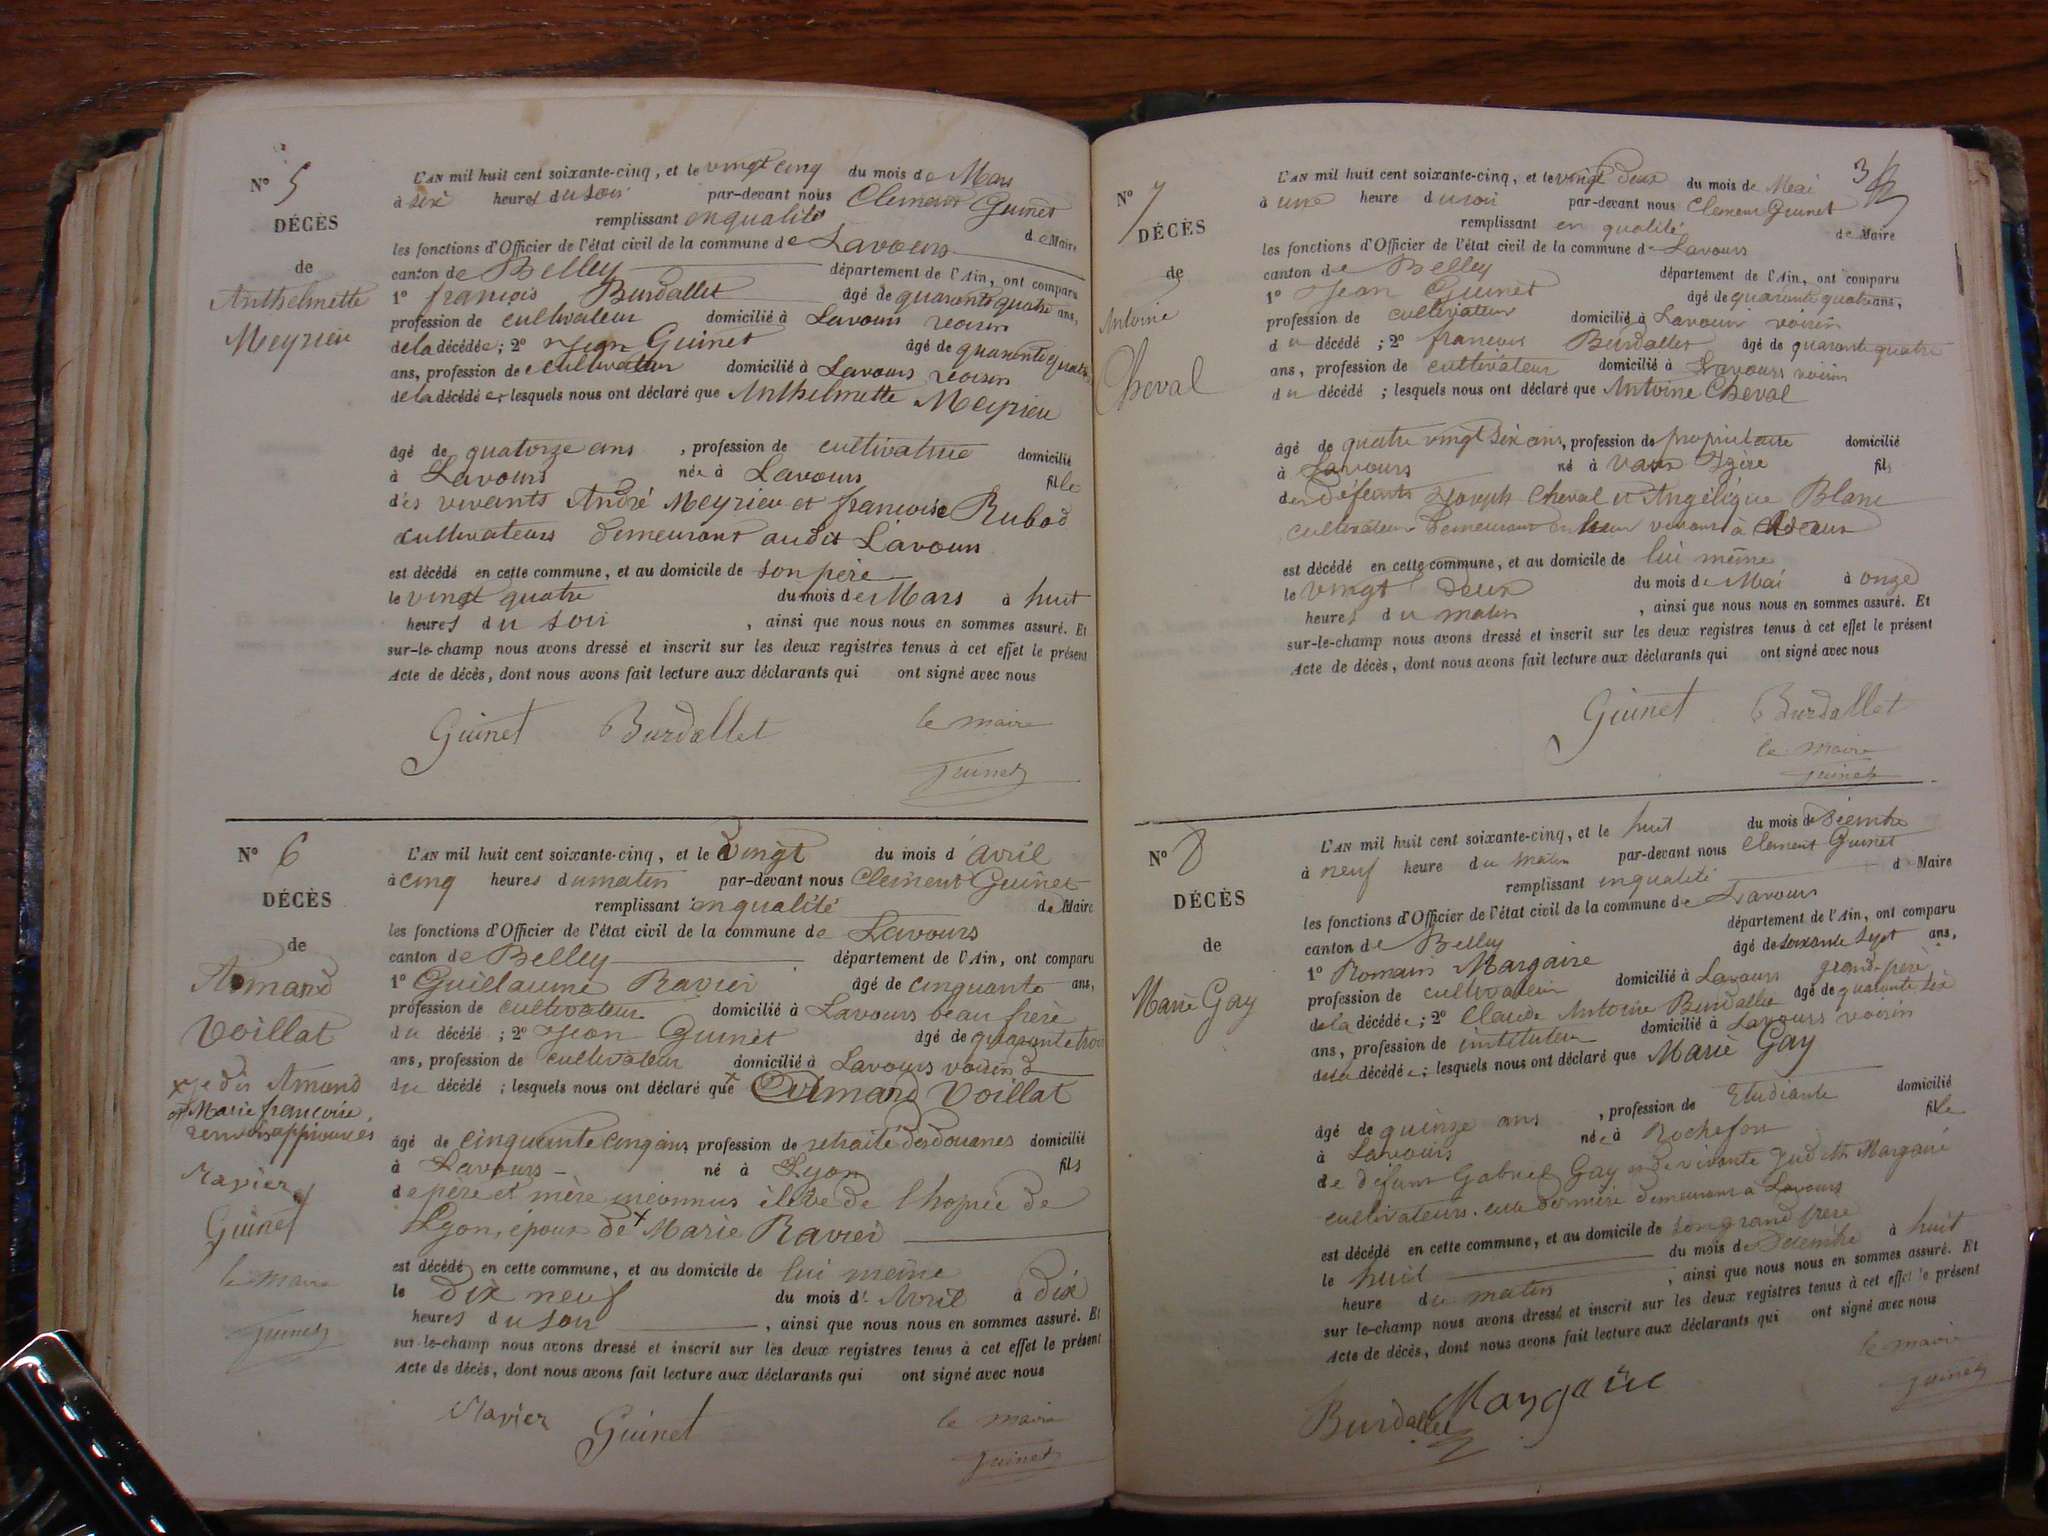 N° 5
DÉCÈS
de
Anthelmette
Meyrieu
L'AN mil huit cent soixante-cinq, et le vingt cinq du mois de Mars
à six heures du soir par-devant nous Clement Guinet
remplissant en qualité de Maire
les fonctions d'Officier de l'état civil de la commune de Lavours
canton de Belley département de l'Ain, ont comparu
1° françois Burdallet âgé de quarante quatre ans,
profession de cultivateur domicilié à Lavours voisin
de la décédée; 2° Jean Guinet âgé de quarante quatre
ans, profession de cultivateur domicilié à Lavours voisin
de la décédée, lesquels nous ont déclaré que Anthelmette Meyrieu
âgé de quatorze ans, profession de cultivatrice domicilié
à Lavours née à Lavours fille
des vivants André Meyrieu et françoise Rubod
cultivateurs demeurant audit Lavours
est décédé en cette commune, et au domicile de son père
le vingt quatre du mois de Mars à huit
heures du soir, ainsi que nous nous en sommes assuré. Et
sur-le-champ nous avons dressé et inscrit sur les deux registres tenus à cet effet le présent
Acte de décès, dont nous avons fait lecture aux déclarants qui ont signé avec nous
Guinet Burdallet le maire
Guinet
N° 6
DÉCÈS
de
Armand
Voillat
x je dis Amand
et Marie françoise,
renvois approuvés
Ravier
Guinet
le maire
Guinet
L'AN mil huit cent soixante-cinq, et le vingt du mois d'avril
à cinq heures du matin par-devant nous Clement Guinet
remplissant en qualité de Maire
les fonctions d'Officier de l'état civil de la commune de Lavours
canton de Belley département de l'Ain, ont comparu
1° Guillaume Ravier âgé de cinquante ans,
profession de cultivateur domicilié à Lavours beau frère
du décédé; 2° Jean Guinet âgé de quarante trois
ans, profession de cultivateur domicilié à Lavours voisin
du décédé; lesquels nous ont déclaré que x Armand Voillat
âgé de cinquante cinq ans, profession de retraité des douanes domicilié
à Lavours né à Lyon fils
de père et mère inconnus élève de l'hopice de
Lyon, époux de x Marie Ravier
est décédé en cette commune, et au domicile de lui meme
le dix neuf du mois d'Avril à dix
heures du soir, ainsi que nous nous en sommes assuré. Et
sur-le-champ nous avons dressé et inscrit sur les deux registres tenus à cet effet le présent
Acte de décès, dont nous avons fait lecture aux déclarants qui ont signé avec nous
Ravier Guinet le maire
Guinet
3
N° 7
DÉCÈS
de
Antoine
Cheval
L'AN mil huit cent soixante-cinq, et le vingt deux du mois de Mai
à une heure du soir par-devant nous Clement Guinet
remplissant en qualité de Maire
les fonctions d'Officier de l'état civil de la commune de Lavours
canton de Belley département de l'Ain, ont comparu
1° Jean Guinet âgé de quarante quatre ans,
profession de cultivateur domicilié à Lavours voisin
du décédé; 2° françois Burdallet âgé de quarante quatre
ans, profession de cultivateur domicilié à Lavours voisin
du décédé; lesquels nous ont déclaré que Antoine Cheval
âgé de quatre vingt six ans, profession de propriétaire domicilié
à Lavours né à Isère fils
des défunts Joseph Cheval et Angélique Blanc
cultivateur demeurant de leur vivant à
est décédé en cette commune, et au domicile de lui même
le vingt deux du mois de Mai à onze
heures du matin, ainsi que nous nous en sommes assuré. Et
sur-le-champ nous avons dressé et inscrit sur les deux registres tenus à cet effet le présent
Acte de décès, dont nous avons fait lecture aux déclarants qui ont signé avec nous
Guinet Burdallet
le maire
Guinet
N° 8
DÉCÈS
de
Marie Gay
L'AN mil huit cent soixante-cinq, et le huit du mois de
à neuf heure du matin par-devant nous Clement Guinet
remplissant en qualité de Maire
les fonctions d'Officier de l'état civil de la commune de Lavours
canton de Belley département de l'Ain, ont comparu
1° Romain Margaire âgé de soixante sept ans,
profession de cultivateur domicilié à Lavours grand-père
de la décédée; 2° Claude Antoine Burdallet âgé de quarante six
ans, profession de instituteur domicilié à Lavours voisin
de la décédée; lesquels nous ont déclaré que Marie Gay
âgé de quinze ans, profession de Etudiante domicilié
à Lavours née à Rochefort fille
de défunt Gabriel Gay et de vivante Judith Margaire
cultivateurs. cette dernière demeurant à Lavours
est décédé en cette commune, et au domicile de son grand père
le huit du mois de à huit
heure du matin, ainsi que nous nous en sommes assuré. Et
sur le-champ nous avons dressé et inscrit sur les deux registres tenus à cet effet le présent
Acte de décès, dont nous avons fait lecture aux déclarants qui ont signé avec nous
Burdallet Margaire le maire
Guinet